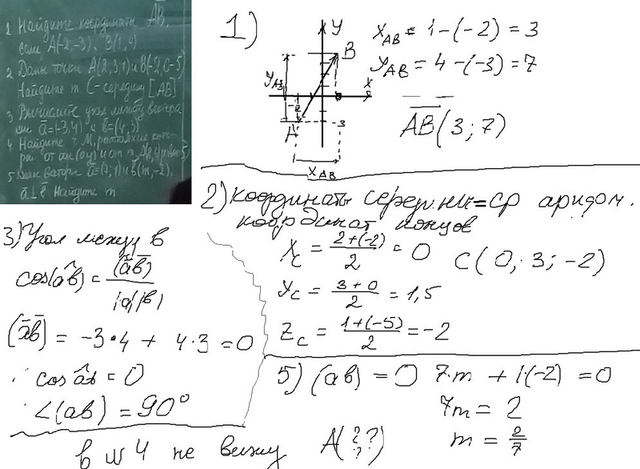 1 Найдите координаты AB,
если A(-2,-3), B(1,4)
2 Даны точки A(2,3,1) и B(-2,0-5)
Найдите т C-середину [AB]
3 Вычислите угол между
ā=(-3,4) и b=(4,3)
4 Найдите т M,
5 Даны вектора ā=(7,1) и b(m,-2),
ā⊥b Найдите m
1)
Y
B
X
A
-2
-3
YAB
XAB
XAB = 1-(-2) = 3
YAB = 4-(-3) = 7
AB(3;7)
2) координаты середины=ср арифм.
координат концов
Xc = 2+(-2)/2 = 0
Yc = 3+0/2 = 1,5
Zc = 1+(-5)/2 = -2
C(0;3;-2)
3) Угол между в
cos(ab) = (āb̄)/|a||b|
(āb̄) = -3·4 + 4·3 = 0
cos ab = 0
∠(ab) = 90°
5) (ab) = 0 7·m + 1(-2) = 0
7m = 2
m = 2/7
в №4 не вижу A(??
??)